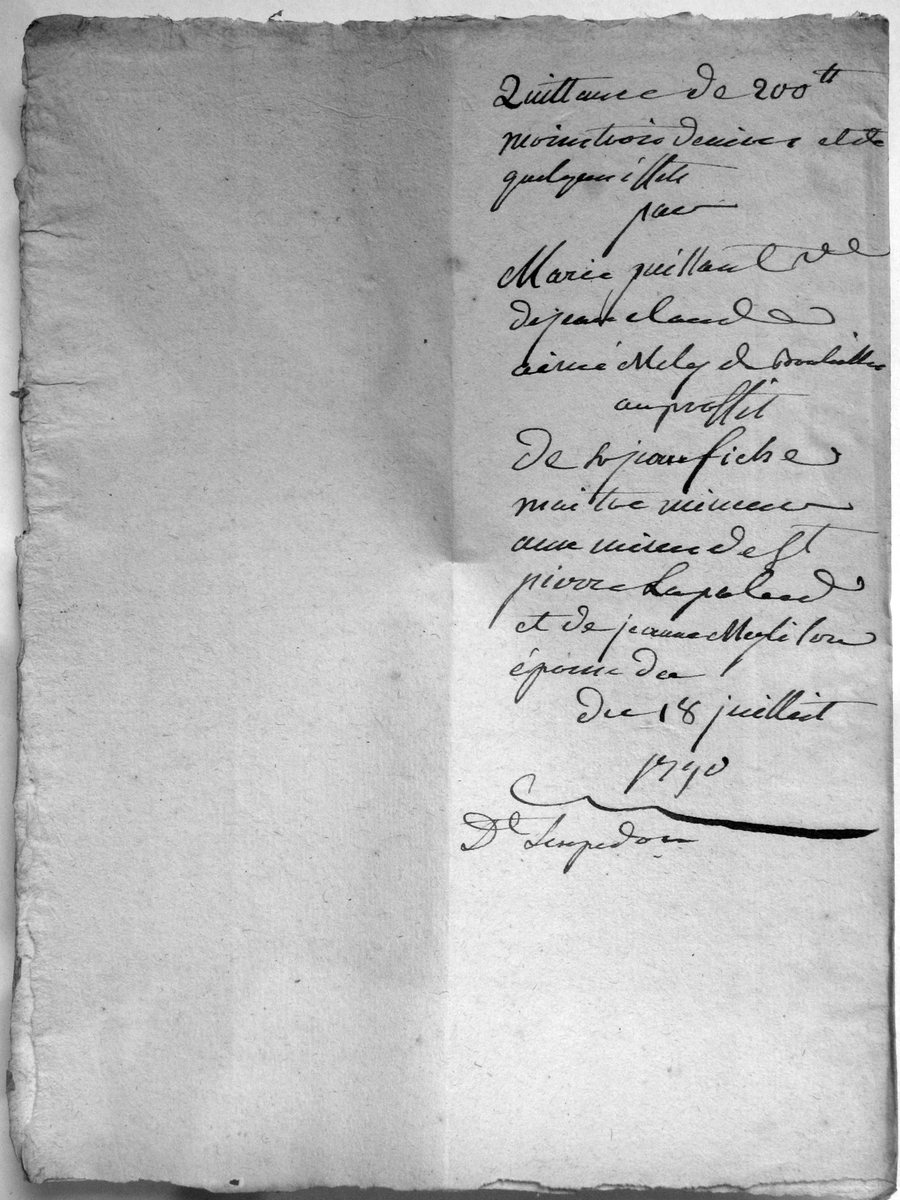 Quittance de 200tt
moins trois deniers et de
quelques effets
par
Marie guillard vve
de jean claude
aimé Mely de
au proffit
de sr jean fiche
maitre mineur
aux mines de st
pierre Lapalud
et de jeanne
épouse du
du 18 juillet
1790
Dt